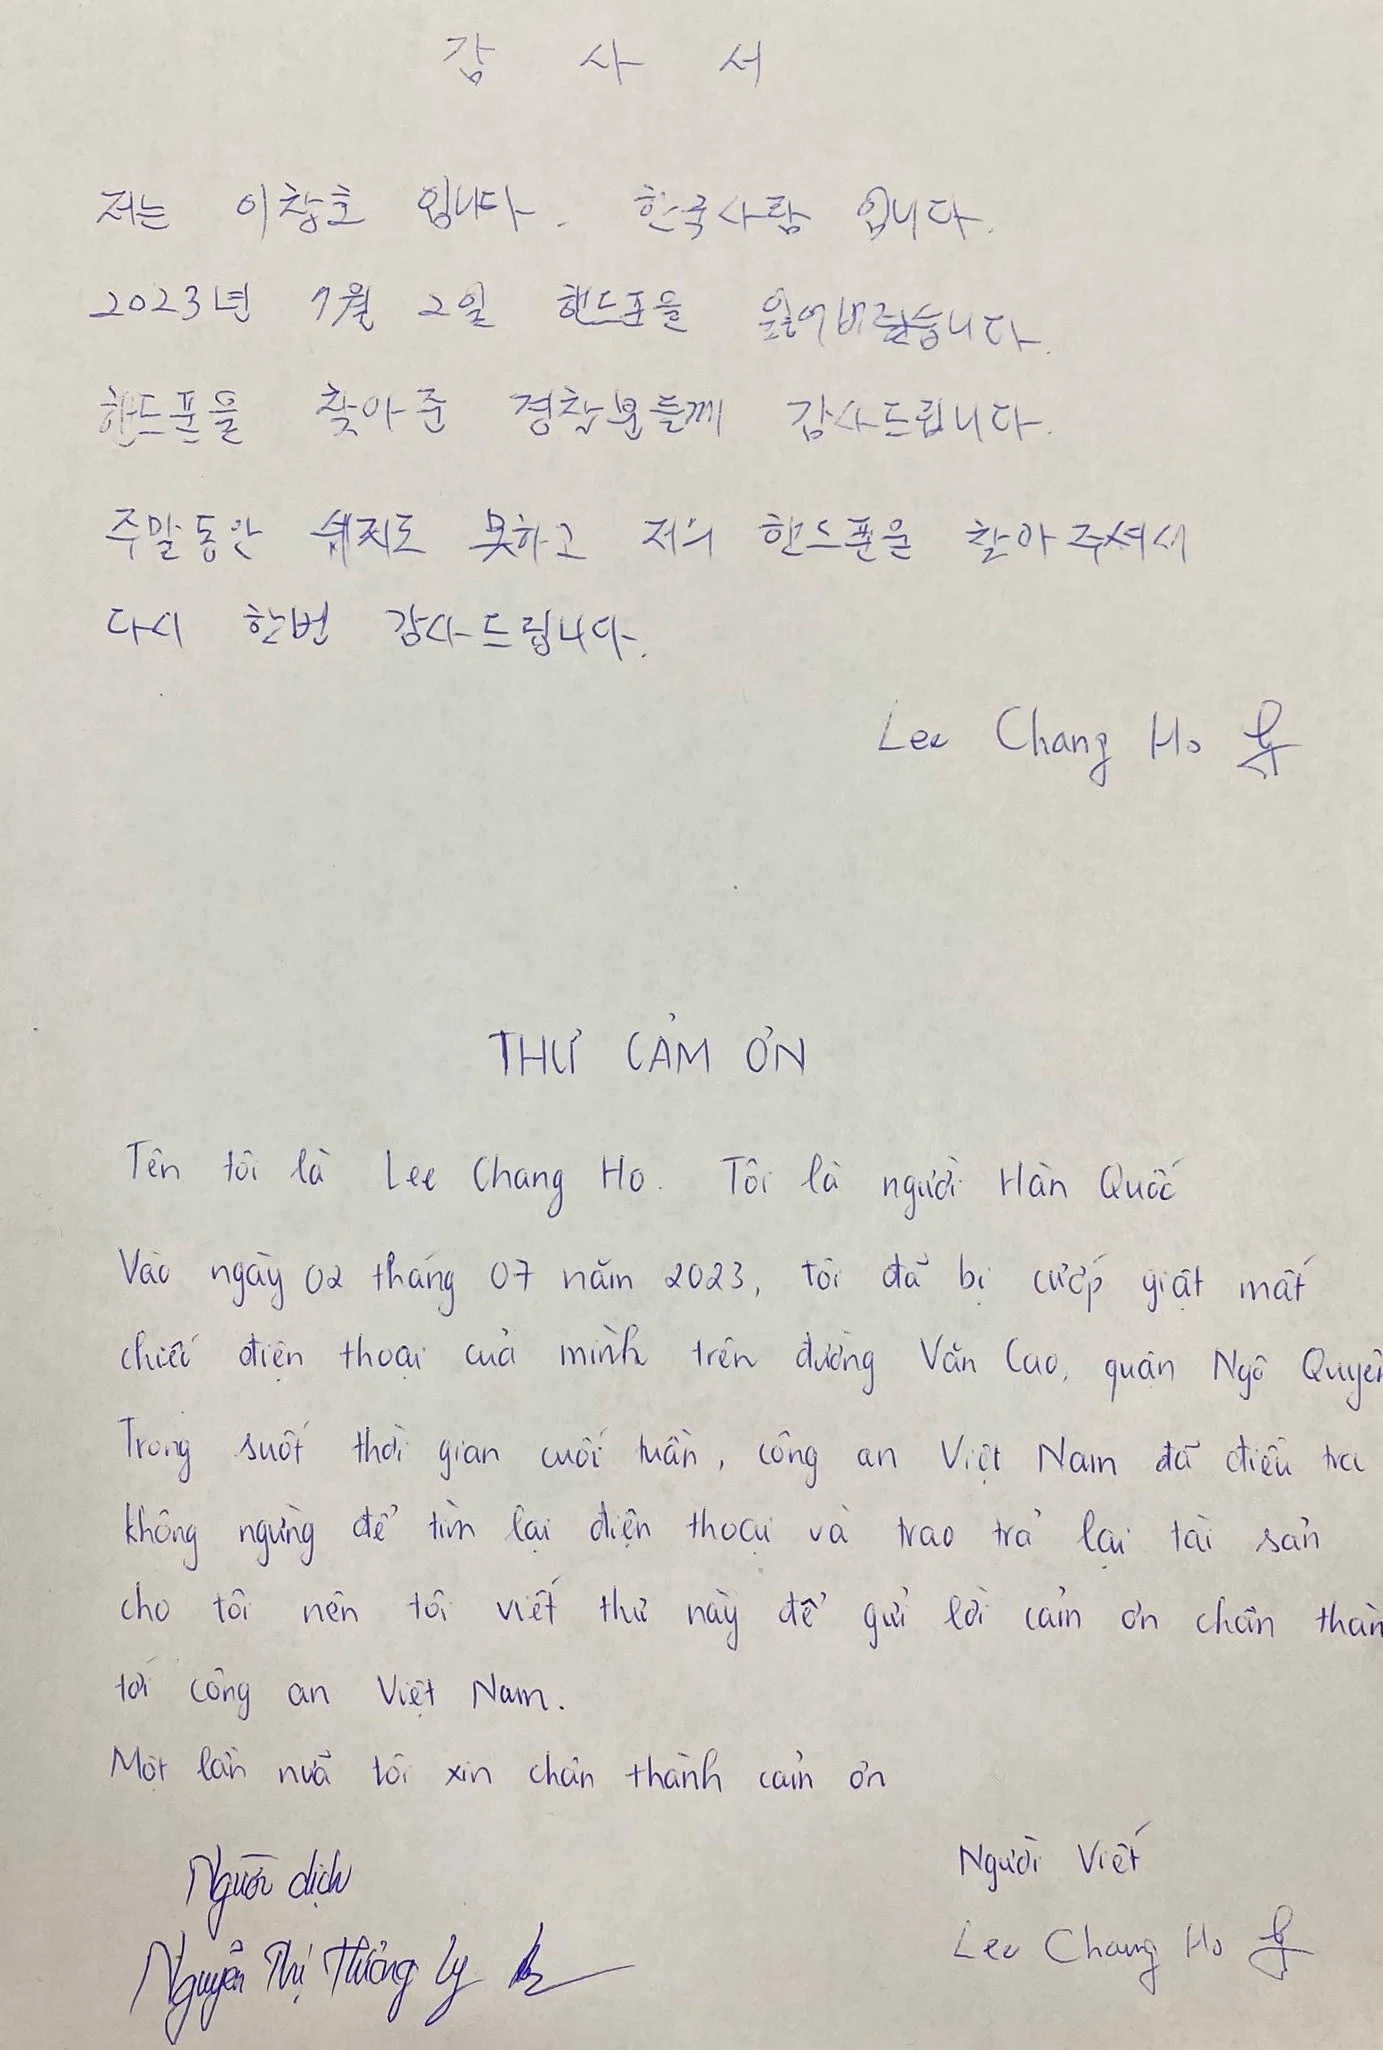 감 사 서
저는 이창호 입니다. 한국사람 입니다.
2023년 7월 2일 핸드폰을 잃어버렸습니다.
핸드폰을 찾아 준 경찰분들께 감사드립니다.
주말동안 쉬지도 못하고 저의 핸드폰을 찾아주셔서
다시 한번 감사드립니다.
Lee Chang Ho
THƯ CẢM ƠN
Tên tôi là Lee Chang Ho. Tôi là người Hàn Quốc
Vào ngày 02 tháng 07 năm 2023, tôi đã bị cướp giật mất
chiếc điện thoại của mình trên đường Văn Cao, quận Ngô Quyền
Trong suốt thời gian cuối tuần, công an Việt Nam đã điều tra
không ngừng để tìm lại điện thoại và trao trả lại tài sản
cho tôi nên tôi viết thư này để gửi lời cảm ơn chân thàn
tới công an Việt Nam.
Một lần nữa tôi xin chân thành cảm ơn
Người dịch
Người Viết
Nguyễn Thị Thưởng Ly
Lee Chang Ho